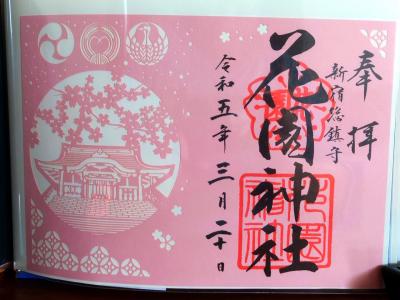 奉拝
新宿総鎮守
花園神社
令和五年三月二十日